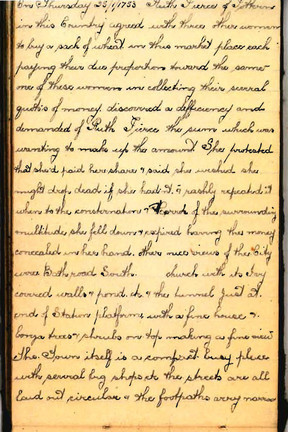 On Thursday 25/1/1753 Ruth Pierce of Pottern
in this Country agreed with three other women
to buy a sack of wheat in this market place each
paying their due proportion toward the same
one of these women in collecting their several
quotis of money discovered a defficiency and
demanded of Ruth Pierce the sum which was
wanting to make up the amount She protested
that she'd paid here share & said she wished she
might drop dead if she had it, & rashly repeated it
when to the consternation & Terror of the surrounding
multitude she fell down & expired having the money
concealed in her hand. Other nice views of the City
were Bath road South. church with its Ivy
covered walls & pond etc & the tunnel just at
end of Station platform with a fine house &
trees & shrubs on top making a fine view
The Town itself is a compact busy place
with several big shops etc the streets are all
laid out circular & the footpaths very narrow